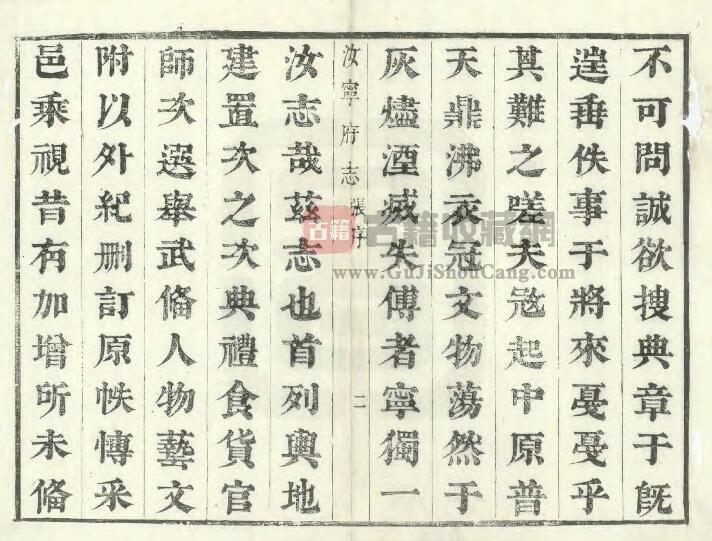 不可問誠欲搜典章于旣
逞垂佚事于將來戞戞乎
其難之嗟夫寇起中原普
天鼎沸衣冠文物蕩然于
灰燼湮滅失傳者寧獨一
汝寧府志 張序 二
汝志哉茲志也首列輿地
建置次之次典禮食貨官
師次選舉武俻人物藝文
附以外紀刪訂原帙慱采
邑乘視昔有加增所未俻
古籍 古籍收藏網
www.GuJiShouCang.com